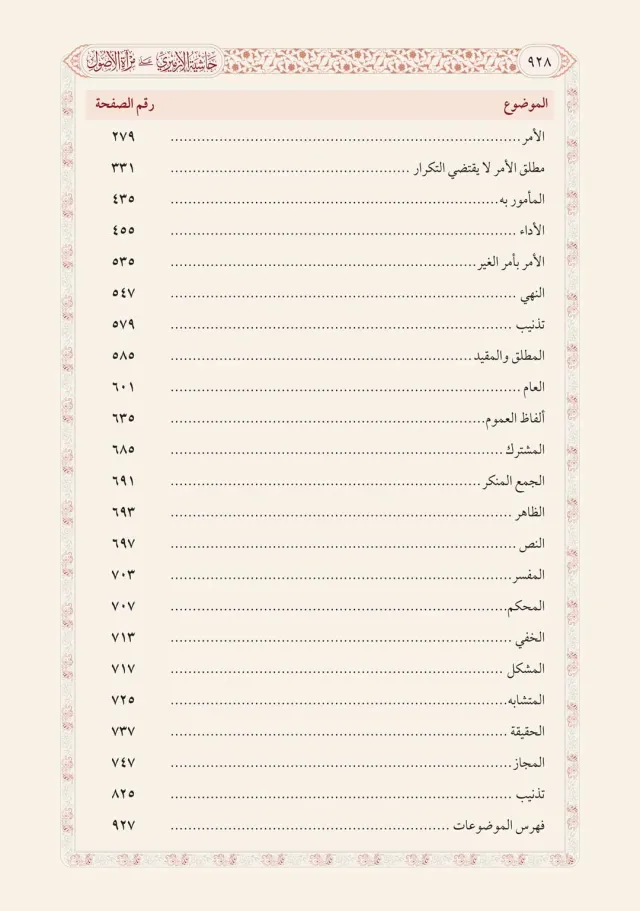 ٩٢٨ حاشية الإزميري على مرآة الأصول
الموضوع رقم الصفحة
الأمر ........ ٢٧٩
مطلق الأمر لا يقتضي التكرار ........ ٣٣١
المأمور به ........ ٤٣٥
الأداء ........ ٤٥٥
الأمر بأمر الغير ........ ٥٣٥
النهي ........ ٥٤٧
تذنيب ........ ٥٧٩
المطلق والمقيد ........ ٥٨٥
العام ........ ٦٠١
ألفاظ العموم ........ ٦٣٥
المشترك ........ ٦٨٥
الجمع المنكر ........ ٦٩١
الظاهر ........ ٦٩٣
النص ........ ٦٩٧
المفسر ........ ٧٠٣
المحكم ........ ٧٠٧
الخفي ........ ٧١٣
المشكل ........ ٧١٧
المتشابه ........ ٧٢٥
الحقيقة ........ ٧٣٧
المجاز ........ ٧٤٧
تذنيب ........ ٨٢٥
فهرس الموضوعات ........ ٩٢٧